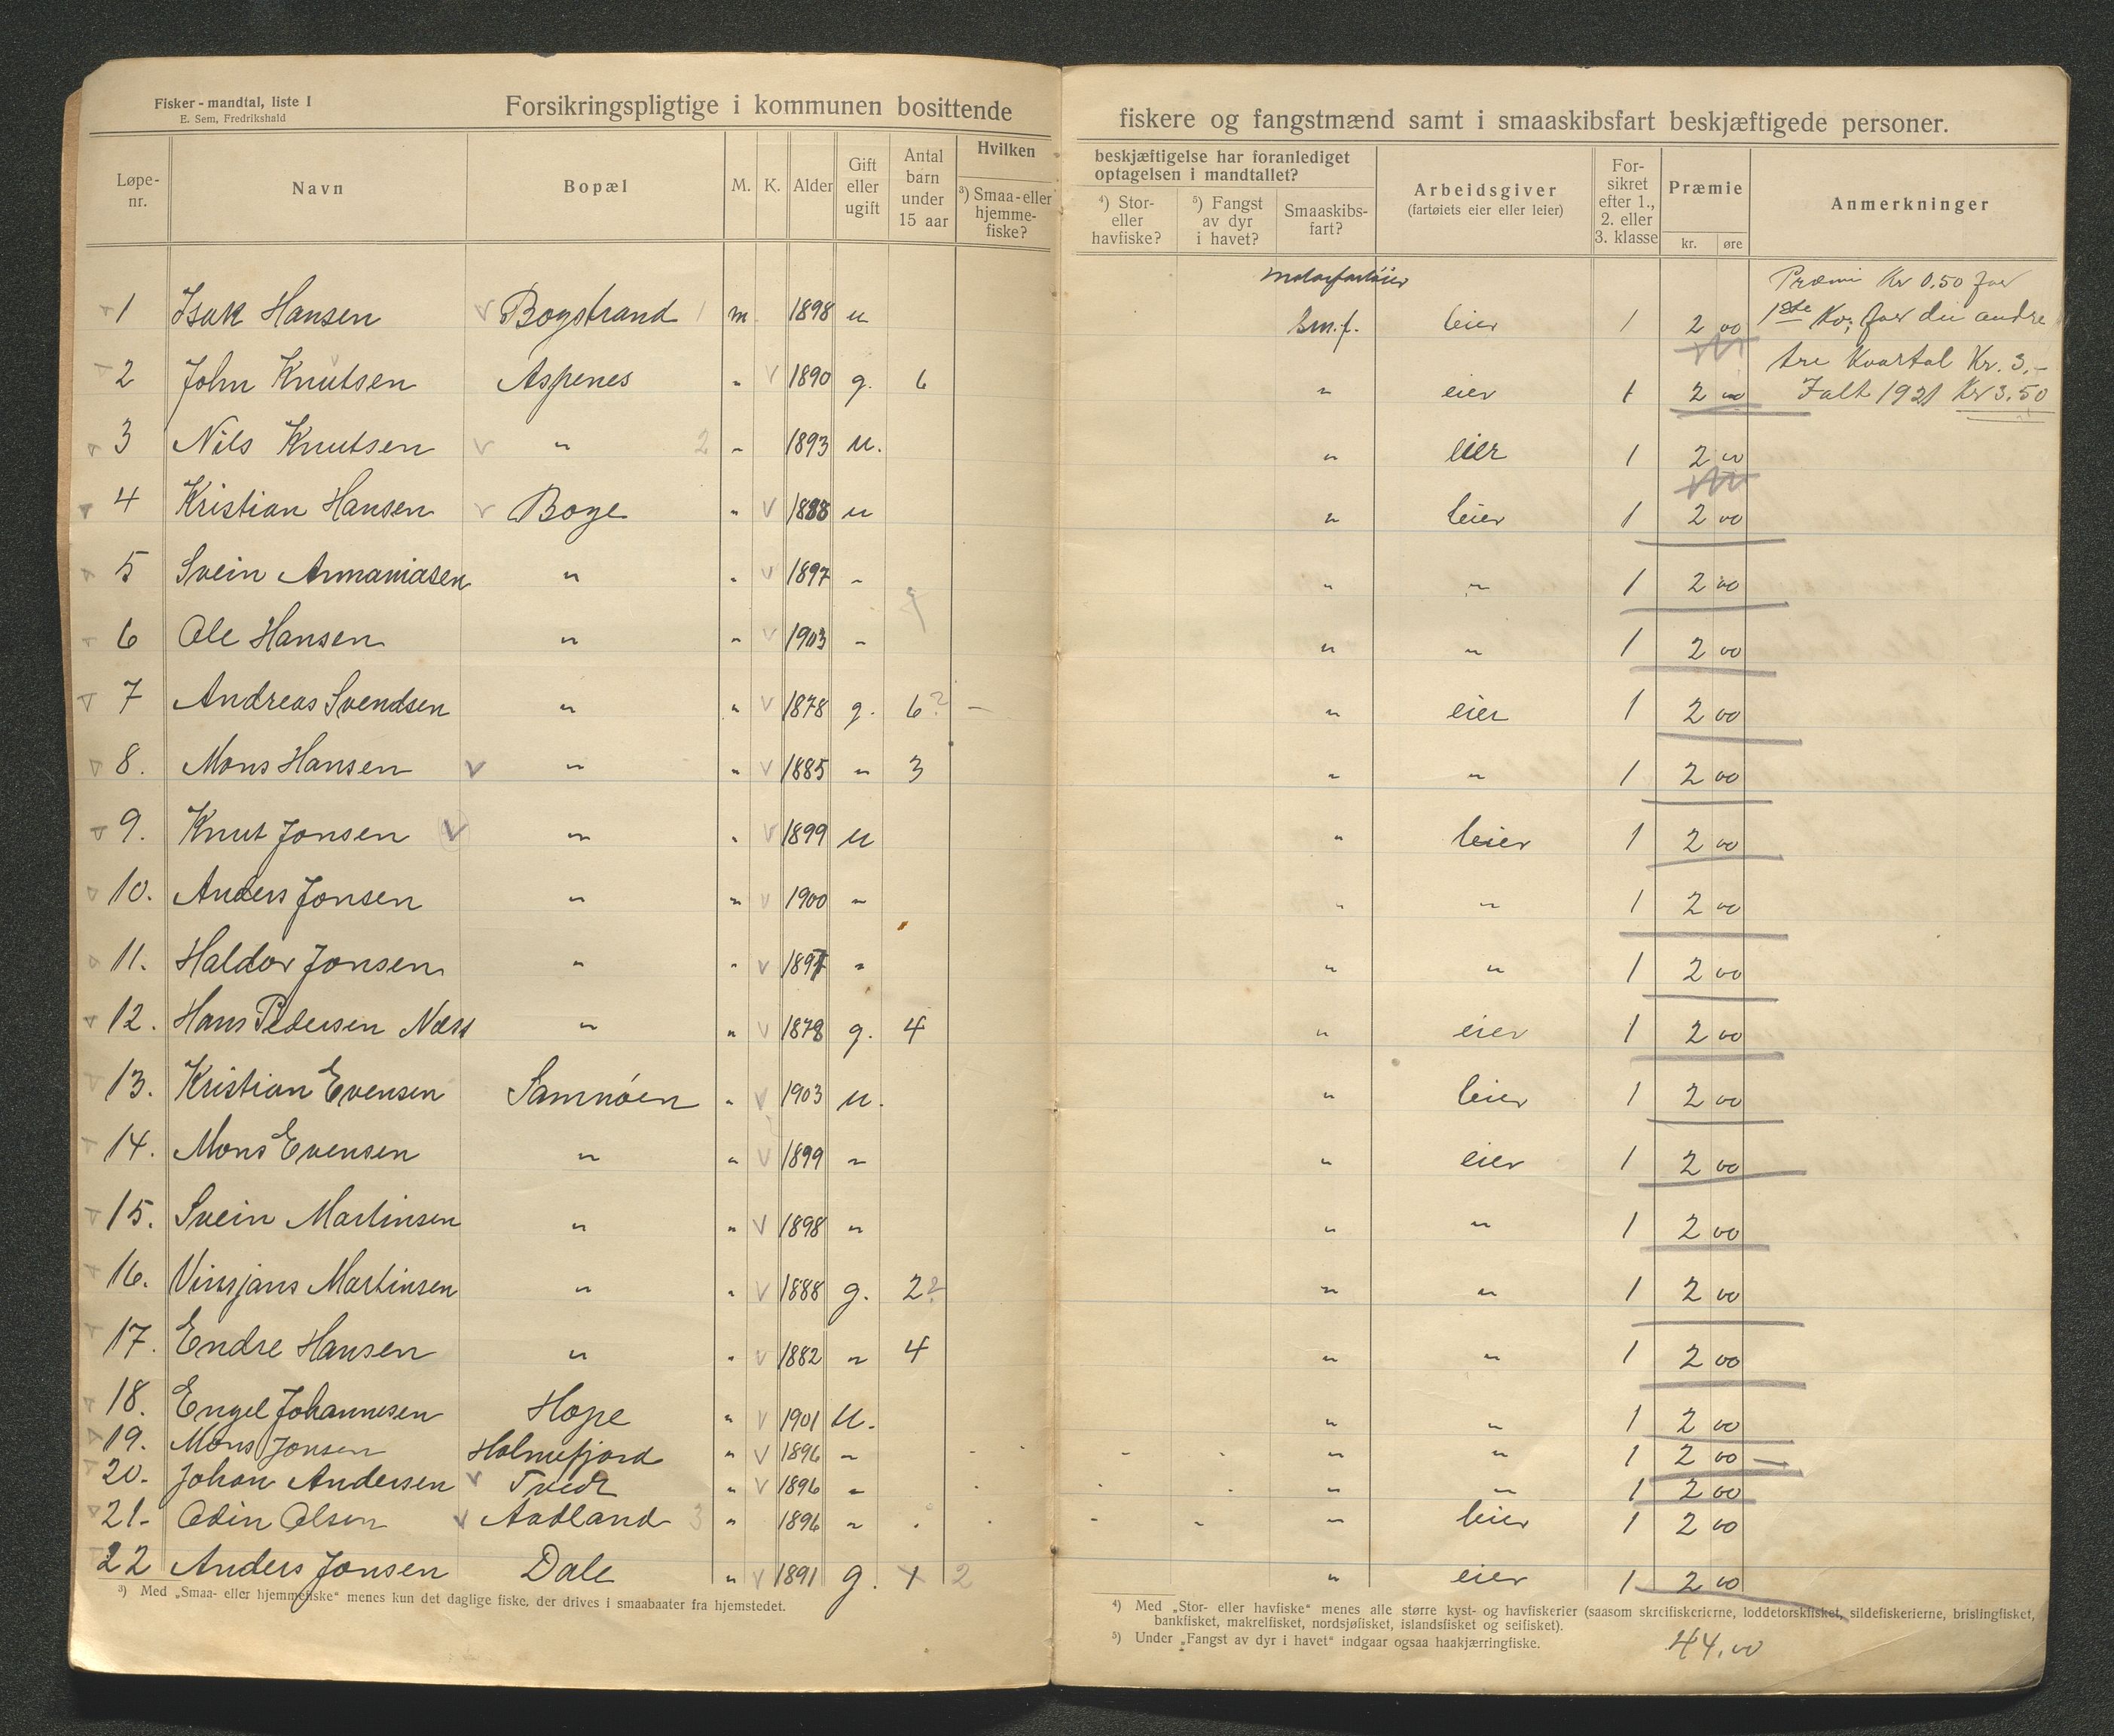 Fisker - mandtal, liste I
E. Sem, Fredrikshald
Forsikringspligtige i kommunen bosittende fiskere og fangstmænd samt i smaaskibsfart beskjæftigede personer.
Løpe-nr. Navn Bopæl M. K. Alder Gift eller ugift Antal barn under 15 aar Hvilken beskjæftigelse har foranlediget optagelsen i mandtallet? ³) Smaa- eller hjemme-fiske? ⁴) Stor- eller havfiske? ⁵) Fangst av dyr i havet? Smaaskibs-fart? Arbeidsgiver (fartøiets eier eller leier) For-sikret efter 1., 2. eller 3. klasse Præmie kr. øre Anmerkninger
Motorfartöier Præmi Kr 0.50 for
1 Isak Hansen V Bogstrand 1 m 1898 u Sm.f. leier 1 2 00 1ste Kv; for dei andre
tre Kvartal Kr. 3,-
2 John Knutsen Aspenes " V 1890 g. 6 " eier 1 2 00 Ialt 1921 Kr 3.50
3 Nils Knutsen V " 2 " 1893 u. " eier 1 2 00
4 Kristian Hansen V Boge " V 1888 u " leier 1 2 00
5 Svein Annaniasen " " V 1897 " " " 1 2 00
6 Ole Hansen " " V 1903 " " " 1 2 00
7 Andreas Svendsen " " V 1878 g. 6? - " eier 1 2 00
8. Mons Hansen V " " V 1885 " 3 " " 1 2 00
9. Knut Jonsen V " " V 1899 u " leier 1 2 00
10. Anders Jonsen " " V 1900 " " " 1 2 00
11. Haldor Jonsen " " V 1897 " " " 1 2 00
12. Hans Pedersen Næss " " V 1878 g. 4 " eier 1 2 00
13. Kristian Evensen Samnöen " V 1903 u. " leier 1 2 00
14. Mons Evensen " " V 1899 " " eier 1 2 00
15. Svein Martinsen " " V 1898 " " " 1 2 00
16. Vinsjans Martinsen " " V 1888 g. 2? " " 1 2 00
17. Endre Hansen " " V 1882 " 4 " " 1 2 00
18. Engel Johannesen Hope " V 1901 u. " " 1 2 00
19. Mons Jonsen Holmefjord " V 1896 " - - - - " " 1 2 00 -
20. Johan Andersen V Tvedt " V 1896 " - - - " " 1 2 00
21. Odin Olsen V Aadland 3 " 1896 " - - - - " leier 1 2 00
22 Anders Jonsen Dale " V 1891 g. 1 2 " eier 1 2 00
³) Med „Smaa- eller hjemmefiske“ menes kun det daglige fiske, der drives i smaabaater fra hjemstedet.
⁴) Med „Stor- eller havfiske“ menes alle større kyst- og havfiskerier (saasom skreifiskerierne, loddetorskfisket, sildefiskerierne, brislingfisket,
bankfisket, makrelfisket, nordsjøfisket, islandsfisket og seifisket).
⁵) Under „Fangst av dyr i havet“ indgaar ogsaa haakjærringfiske.
44.00